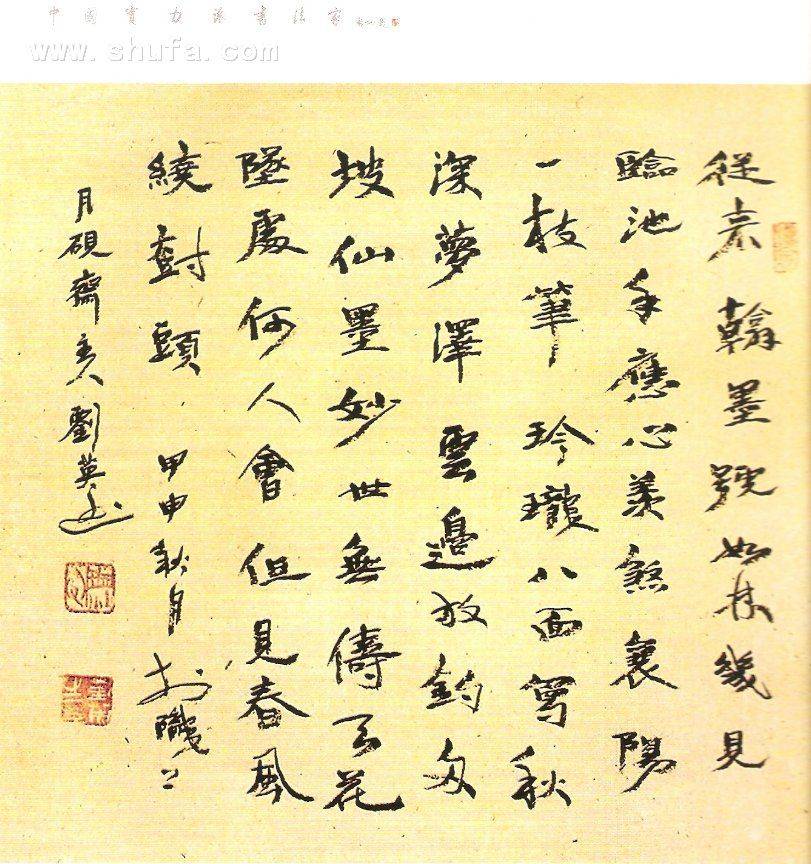 中國實力派書法家
www.shufa.com
從來翰墨號如林幾見
臨池手應心羨煞襄陽
一枝筆玲瓏八面寫秋
深夢澤雲邊放釣舟
坡仙墨妙世無儔天花
墜處何人會但見春風
繞樹頭 甲申秋月於
月硯齋主人劉英書